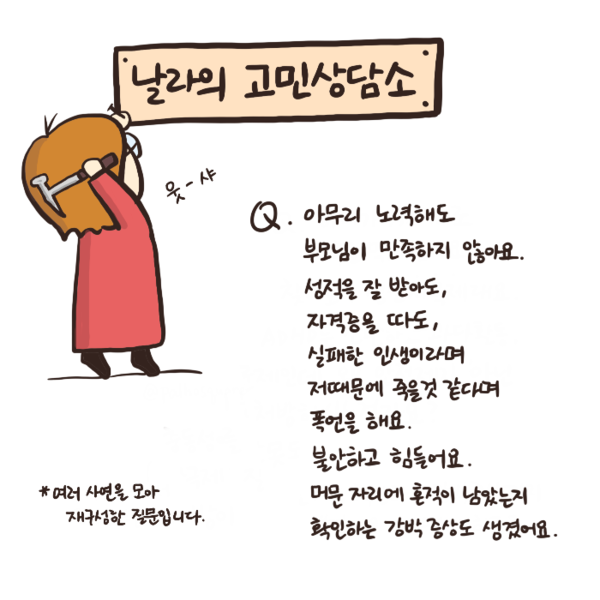 날라의 고민상담소
읏-샤
Q. 아무리 노력해도
부모님이 만족하지 않아요.
성적을 잘 받아도,
자격증을 따도,
실패한 인생이라며
저때문에 죽을것 같다며
폭언을 해요.
불안하고 힘들어요.
머문 자리에 흔적이 남았는지
확인하는 강박 증상도 생겼어요.
*여러 사연을 모아
재구성한 질문입니다.